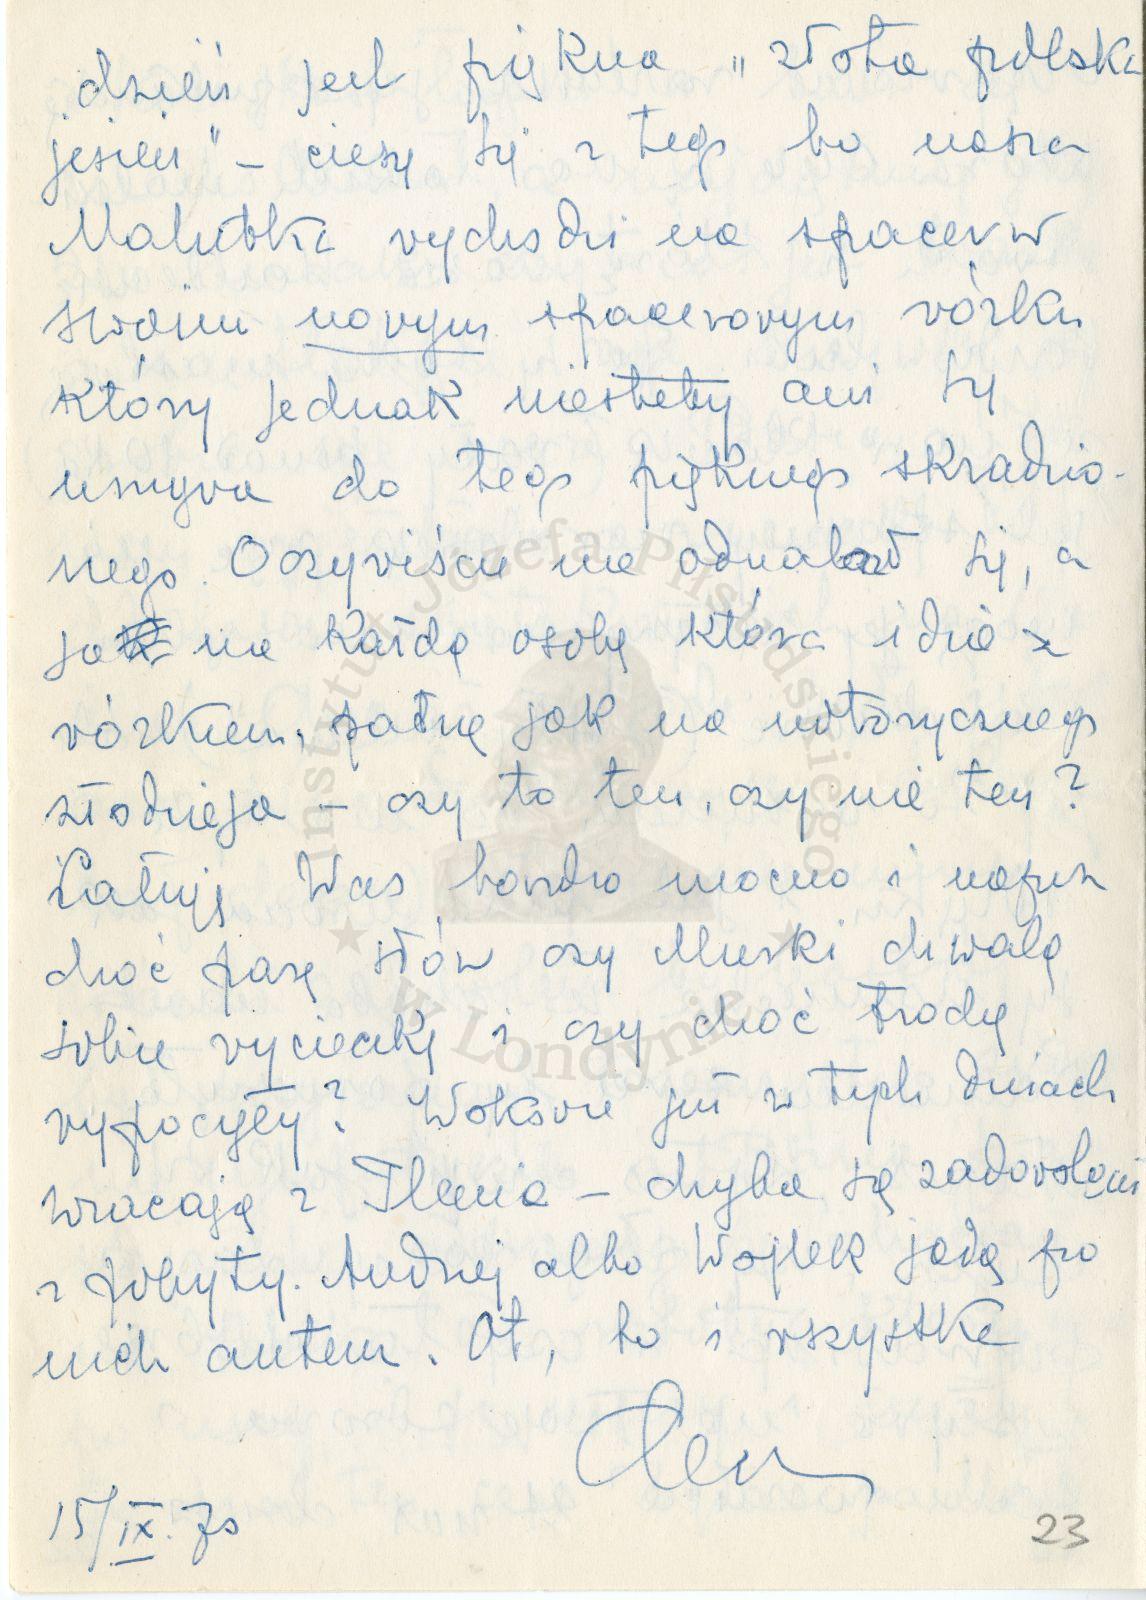 dzień jest piękna "złota polska
jesień" – cieszę się z tego bo nasza
Malutka wychodzi na spacer w
swoim nowym spacerowym wózku
który jednak niestety ani się
umywa do tego pięknego skradzio-
nego. Oczywiście nie odnalazł się, a
ja na każdą osobę która idzie z
wózkiem, patrzę jak na notorycznego
złodzieja – czy to ten, czy nie ten?
Całuję Was bardzo mocno i napisz
choć parę słów czy Muski chwalą
sobie wycieczkę i czy choć trochę
wypoczęły? już w tych dniach
wracają z Tlenia – chyba są zadowoleni
z pobytu. Andrzej albo Wojtek jadą po
nich autem. Ot, to i wszystko
15/IX.70
23
Instytut Józefa Piłsudskiego
w Londynie